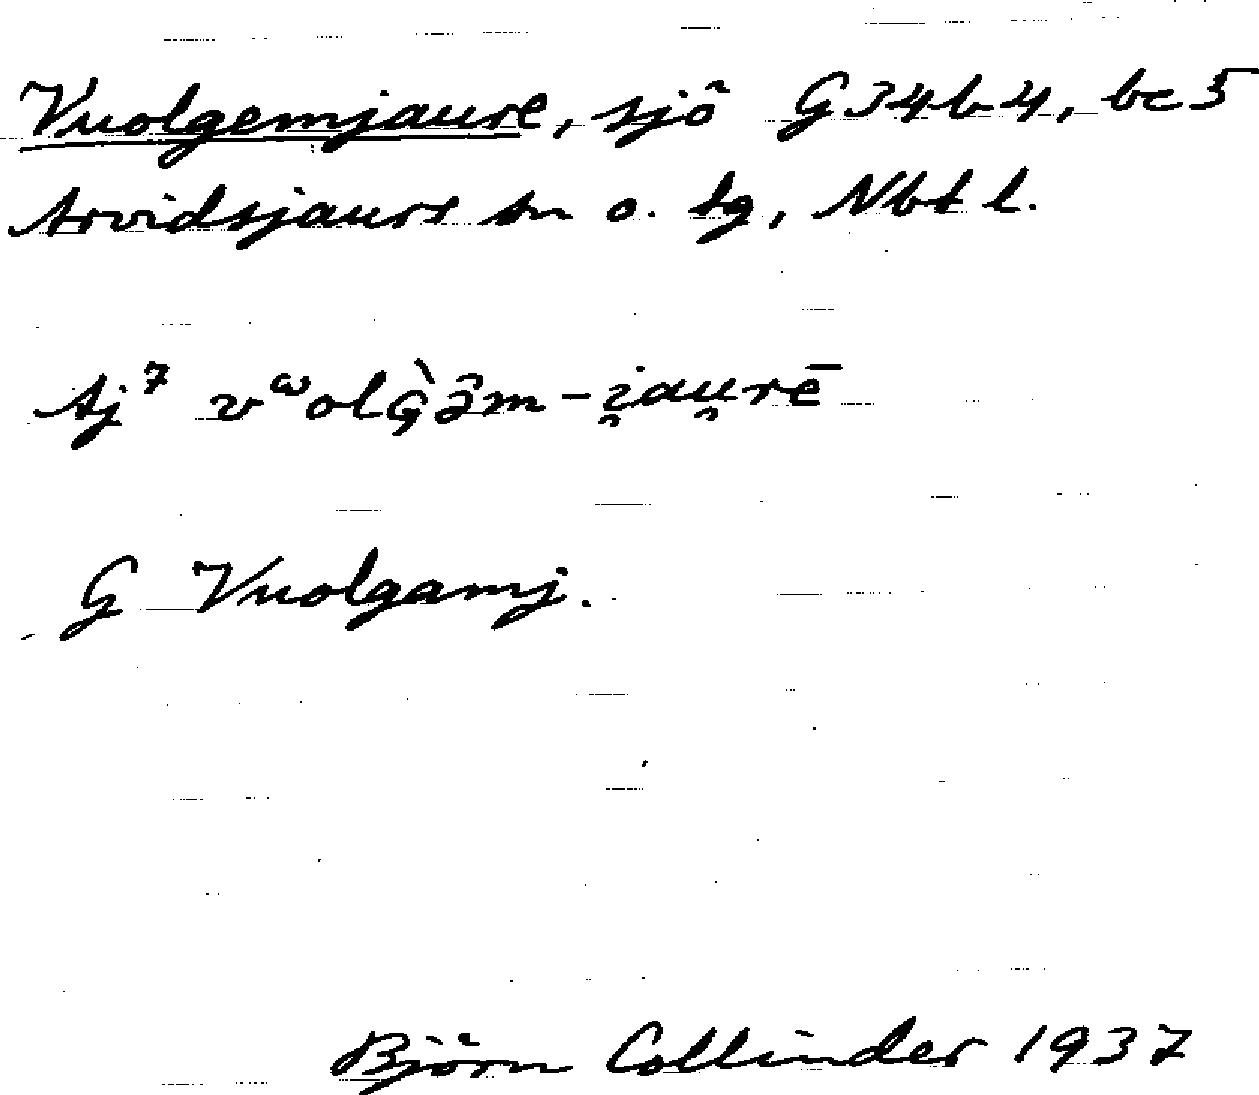 Vuolgemjaure, sjö G34b4, bc5
Arvidsjaurs sn o. tg, Nbt l.
Aj⁷ vᵚolG̀ə̂m-i̯au̯rē
G Vuolgamj.
Björn Collinder 1937